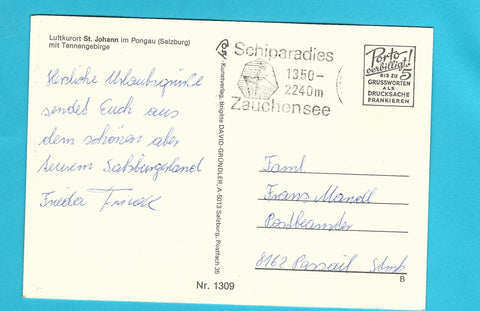 Luftkurort St. Johann im Pongau (Salzburg)
mit Tennengebirge
Herzliche Urlaubsgrüße
sendet Euch aus
dem schönen aber
teurem Salzburgerland
Frieda
Kunstverlag, brigitte DAVID-GRÜNDLER, A-5013 Salzburg, Postfach 35
Schiparadies
1350-
2240m
Zauchensee
Porto
verbilligt!
BIS ZU 5
GRUSSWORTEN
ALS
DRUCKSACHE
FRANKIEREN
Faml
Franz Mandl
Postbeamter
8162 Passail Stmk
Nr. 1309
B